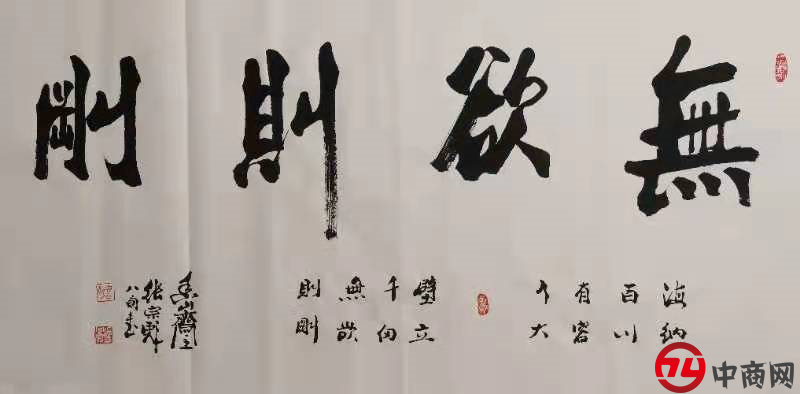 無欲則剛
海納
百川
有容
乃大
壁立
千仞
無欲
則剛
山齋主
張宗
八旬
中商网